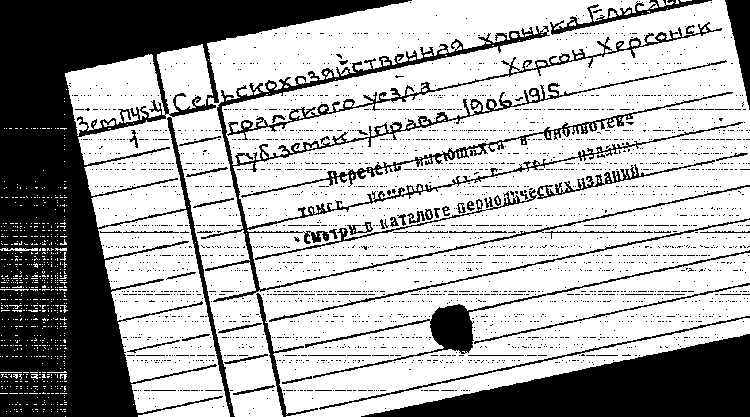 Зем.пуб.
1
Сельскохозяйственная хроника Елисав
градского уезда Херсон, Херсонск
губ. земск. управа, 1906-1915.
Перечень имеющихся в библиотеке
томов, номеров издания
смотри в каталоге периодических изданий.